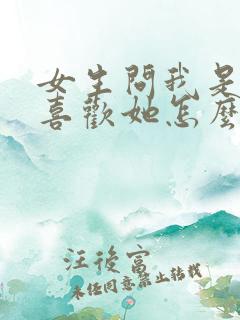 女生問我是
喜歡她怎麼
汪後富
未經同意禁止轉載